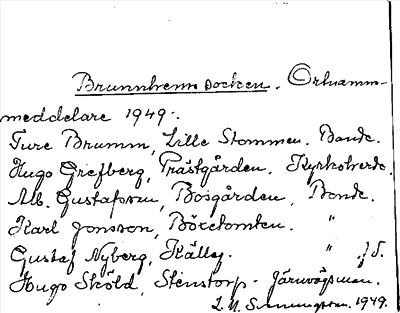 Brunnhems socken. Ortnamns-
meddelare 1949.
Ture Brumm, Lille Stommen. Bonde.
Hugo Grefberg, Prästgården. Kyrkovärde.
Alb. Gustafsson, Bosgården, Bonde.
Karl Jonsson, Böretomten. "
Gustaf Nyberg, Källeg. " f.d.
Hugo Sköld, Stenstorp - Järnvägsman.
1949.